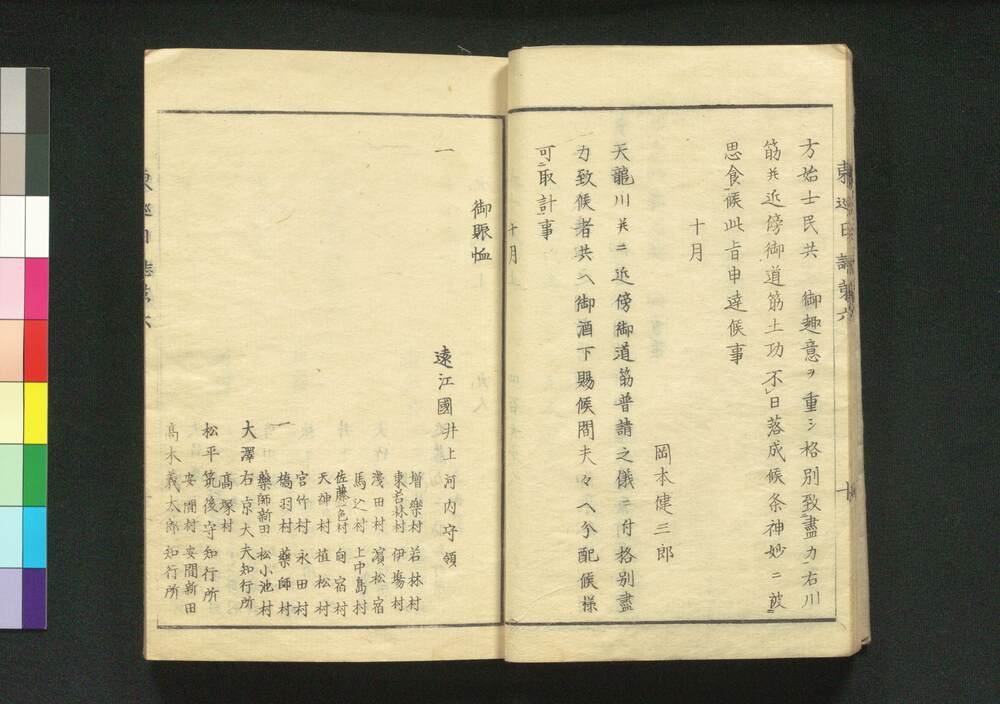 東巡日誌第六
十
方始士民共　御趣意ヲ重シ格別致盡力右川
筋并近傍御道筋土功不日落成候条神妙ニ被
思食候此旨申達候事
十月
岡本健三郎
天龍川并ニ近傍御道筋普請之儀ニ付格別盡
力致候者共ヘ御酒下賜候間夫々ヘ分配候様
可取計事
十月
御賑恤
一
遠江國井上河内守領
増樂村　若林村
東若林村　伊塲村
淺田村　濱松宿
馬込村　上中島村
佐藤一色村　向宿村
天神村　植松村
宮竹村　永田村
橋羽村　藥師村
一
藥師新田　松小池村
大澤右京大夫知行所
高塚村
松平筑後守知行所
安間村　安間新田
髙木義太郎知行所